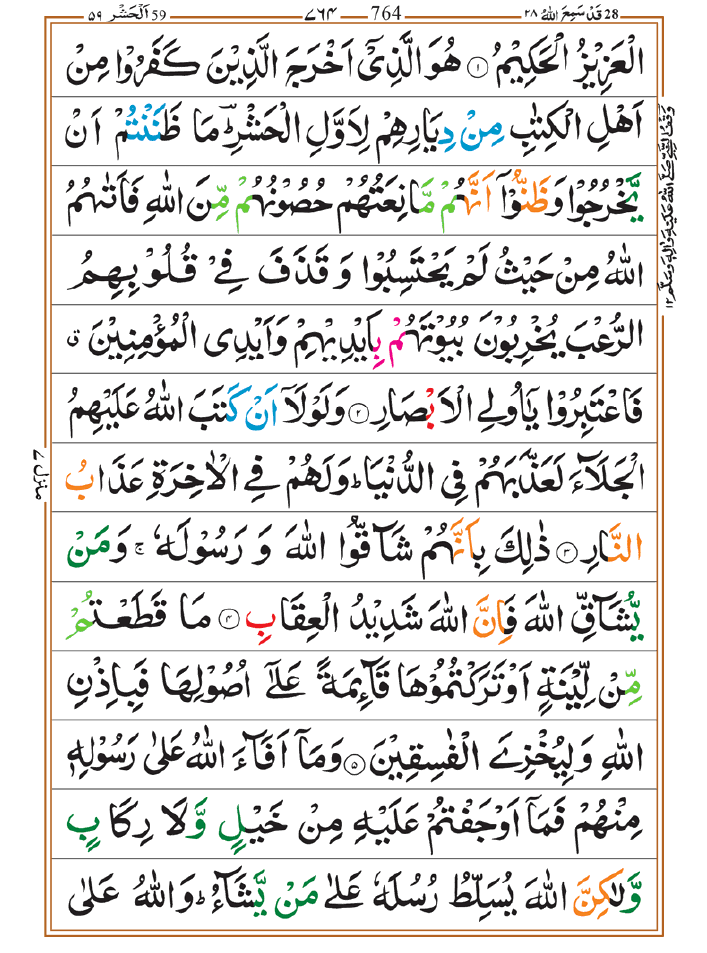 28 قَدْ سَمِعَ اللّٰهُ ۲۸
764 ۷۶۴
59 اَلْحَشْر ۵۹
الْعَزِيْزُ الْحَكِيْمُ ۝۱ هُوَ الَّذِيْۤ اَخْرَجَ الَّذِيْنَ كَفَرُوْا مِنْ
اَهْلِ الْكِتٰبِ مِنْ دِيَارِهِمْ لِاَوَّلِ الْحَشْرِ ؔ مَا ظَنَنْتُمْ اَنْ
يَّخْرُجُوْا وَظَنُّوْۤا اَنَّهُمْ مَّانِعَتُهُمْ حُصُوْنُهُمْ مِّنَ اللّٰهِ فَاَتٰىهُمُ
اللّٰهُ مِنْ حَيْثُ لَمْ يَحْتَسِبُوْا وَ قَذَفَ فِيْ قُلُوْبِهِمُ
الرُّعْبَ يُخْرِبُوْنَ بُيُوْتَهُمْ بِاَيْدِيْهِمْ وَاَيْدِي الْمُؤْمِنِيْنَ ۗ
فَاعْتَبِرُوْا يٰۤاُولِي الْاَبْصَارِ ۝۲ وَلَوْلَاۤ اَنْ كَتَبَ اللّٰهُ عَلَيْهِمُ
الْجَلَآءَ لَعَذَّبَهُمْ فِي الدُّنْيَا ؕ وَلَهُمْ فِي الْاٰخِرَةِ عَذَابُ
النَّارِ ۝۳ ذٰلِكَ بِاَنَّهُمْ شَآقُّوا اللّٰهَ وَ رَسُوْلَهٗ ۚ وَمَنْ
يُّشَآقِّ اللّٰهَ فَاِنَّ اللّٰهَ شَدِيْدُ الْعِقَابِ ۝۴ مَا قَطَعْتُمْ
مِّنْ لِّيْنَةٍ اَوْ تَرَكْتُمُوْهَا قَآئِمَةً عَلٰۤى اُصُوْلِهَا فَبِاِذْنِ
اللّٰهِ وَلِيُخْزِيَ الْفٰسِقِيْنَ ۝۵ وَمَاۤ اَفَآءَ اللّٰهُ عَلٰى رَسُوْلِهٖ
مِنْهُمْ فَمَاۤ اَوْجَفْتُمْ عَلَيْهِ مِنْ خَيْلٍ وَّلَا رِكَابٍ
وَّلٰكِنَّ اللّٰهَ يُسَلِّطُ رُسُلَهٗ عَلٰى مَنْ يَّشَآءُ ؕ وَاللّٰهُ عَلٰى
منزل ۷
وقف النبي صلى الله عليه واله وسلم ۱۲